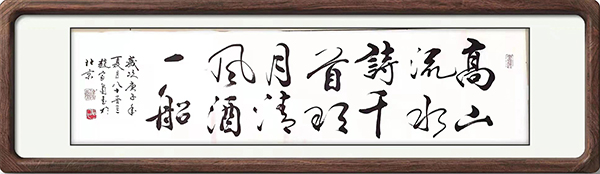 高山
流水
詩千
首明
月清
風酒
一船
歲次庚子年
夏月八十
北京